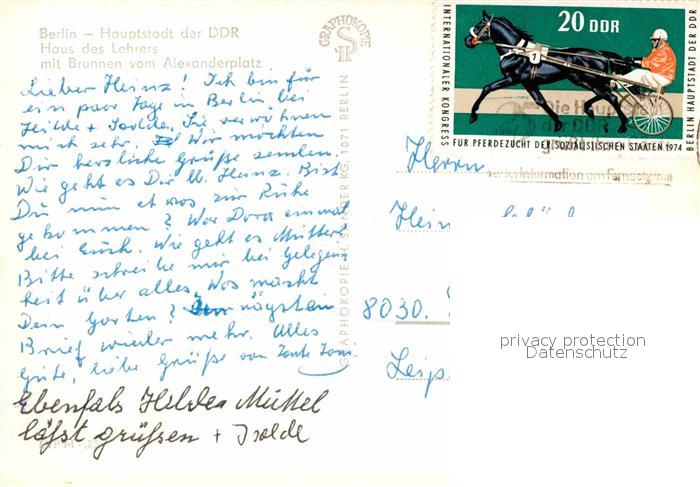 Berlin – Hauptstadt der DDR
Haus des Lehrers
mit Brunnen vom Alexanderplatz
Lieber Heinz! Ich bin für
ein paar Tage in Berlin bei
Hilde + Isolde. Sie verwöhnen
mich sehr. Wir möchten
Dir herzliche Grüße senden.
Wie geht es Dir lb. Heinz. Bist
Du nun etwas zur Ruhe
gekommen? War Dora einmal
bei Euch. Wie geht es Mutter?
Bitte schreibe mir bei Gelegen-
heit über alles. Was macht
Dein Garten? nägsten
Brief wieder mehr. Alles
Gute, liebe Grüße von Tante
Ebenfals Hildea Müttel
läßt grüßen + Isolde
GRAPHOKOPIE
GRAPHOKOPIE H. SANDER KG, 1071 BERLIN
20 DDR
1
INTERNATIONALER KONGRESS
FÜR PFERDEZUCHT DER SOZIALISTISCHEN STAATEN 1974
BERLIN HAUPTSTADT DER DDR
Die Haup
der DDR
information am Fernsehturm
Herrn
Hein
8030.
Leip
privacy protection
Datenschutz